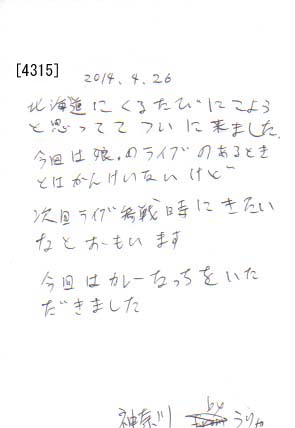 [4315]
2014.4.26
北海道にくるたびにこよう
と思ってて ついに来ました。
今回は娘。のライブのあるとき
とはかんけいないけど
次回ライブ参戦時にきたい
なとおもいます
今回はカレーなっちをいた
だきました
神奈川 by うりゃ